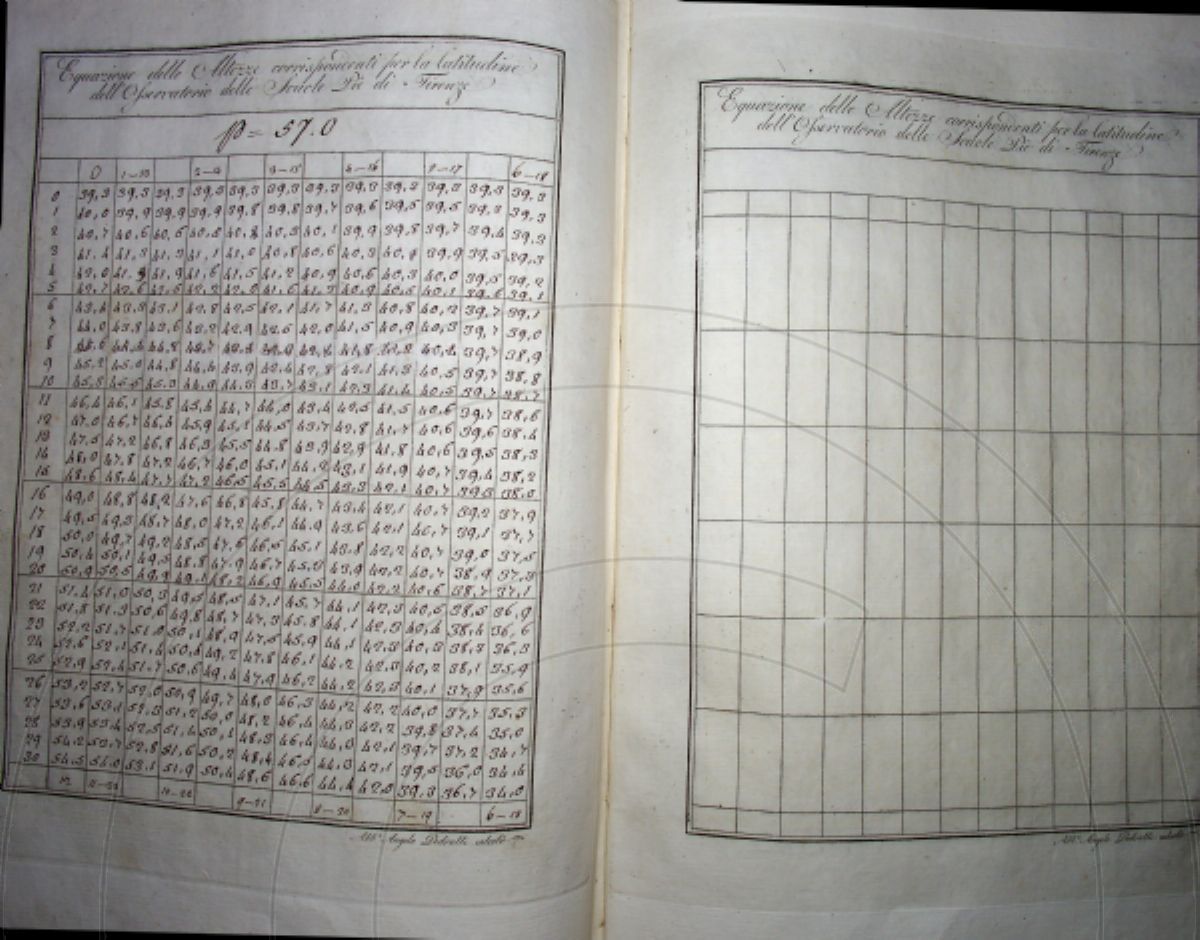 Equazione delle Altezze corrispondenti per la latitudine
dell'Osservatorio delle Scuole Pie di Firenze
p = 57.0
0 1-13 2-14 3-15 4-16 5-17 6-18
0 39,3 39,3 39,3 39,3 39,3 39,3 39,3 39,3 39,3 39,3 39,3 39,3
1 40,0 39,9 39,9 39,9 39,8 39,8 39,7 39,6 39,5 39,5 39,3 39,3
2 40,7 40,6 40,6 40,5 40,3 40,1 39,9 39,8 39,7 39,4 39,3
3 41,4 41,3 41,3 41,1 41,0 40,8 40,6 40,3 39,9 39,5 39,3
4 42,0 41,9 41,6 41,5 41,2 40,9 40,6 40,3 40,0 39,5 39,2
5 42,7 42,6 42,5 42,2 41,6 41,2 40,9 40,5 40,1 39,6 39,1
6 43,4 43,3 43,1 42,8 42,5 42,1 41,7 41,3 40,8 40,2 39,7 39,1
7 44,0 43,8 43,6 42,9 42,5 42,0 41,5 40,9 40,3 39,7 39,0
8 41,8 40,4 39,7 38,9
9 45,2 45,0 44,8 44,4 43,9 42,1 41,3 40,5 39,7 38,8
10 45,8 45,5 45,3 44,9 44,3 43,7 43,1 42,3 41,4 40,5 39,7 38,7
11 46,4 46,1 45,8 45,4 44,7 44,0 43,4 42,5 41,5 40,6 39,7 38,6
12 47,0 46,7 46,4 45,9 45,1 44,5 43,7 42,8 41,7 40,6 39,6 38,4
13 47,5 47,2 46,8 46,3 45,5 44,8 43,9 42,9 41,8 40,6 39,5 38,3
14 48,0 47,8 47,2 46,7 46,0 45,1 44,2 43,1 41,9 40,7 39,4 38,2
15 48,6 48,4 47,7 47,2 46,5 45,5 44,5 43,3 42,1 40,7 39,3 38,0
16 49,0 48,8 48,2 47,6 46,8 45,8 44,7 43,4 42,1 40,7 39,2 37,9
17 49,5 49,3 48,7 48,0 47,2 46,1 44,9 43,6 42,1 40,7 39,1 37,7
18 50,0 49,7 49,2 48,5 47,6 46,5 45,1 43,8 42,2 40,7 39,0 37,5
19 50,4 50,1 49,5 48,8 47,9 46,7 45,3 43,9 42,2 40,7 38,9 37,3
20 50,9 50,5 49,9 49,1 48,2 46,9 45,5 44,0 42,3 40,6 38,7 37,1
21 51,4 51,0 50,3 49,5 48,5 47,1 45,7 44,1 42,3 40,5 38,5 36,9
22 51,8 51,3 50,6 49,8 48,7 47,3 45,8 44,1 42,3 40,4 38,4 36,6
23 52,2 51,7 51,0 50,1 48,9 47,5 45,9 44,1 42,3 40,3 38,3 36,3
24 52,6 52,1 51,4 50,4 49,2 47,8 46,1 44,2 42,3 40,2 38,1 35,9
25 52,9 52,4 51,7 50,6 49,4 47,9 46,2 44,2 42,3 40,1 37,9 35,6
26 53,2 52,7 52,0 50,9 49,7 48,0 46,3 44,2 42,2 40,0 37,7 35,3
27 53,6 53,1 52,3 51,2 50,0 48,2 46,4 44,3 42,2 39,8 37,4 35,0
28 53,9 53,4 52,5 51,4 50,1 48,3 46,4 44,3 42,1 39,7 37,2 34,7
29 54,2 53,7 52,8 51,6 50,2 48,4 46,5 44,3 42,1 39,5 36,0 34,4
30 54,5 54,0 53,1 51,9 50,4 48,6 46,6 44,4 42,0 39,3 36,7 34,0
12 11-23 10-22 9-21 8-20 7-19 6-18
Equazione delle Altezze corrispondenti per la latitudine
dell'Osservatorio delle Scuole Pie di Firenze